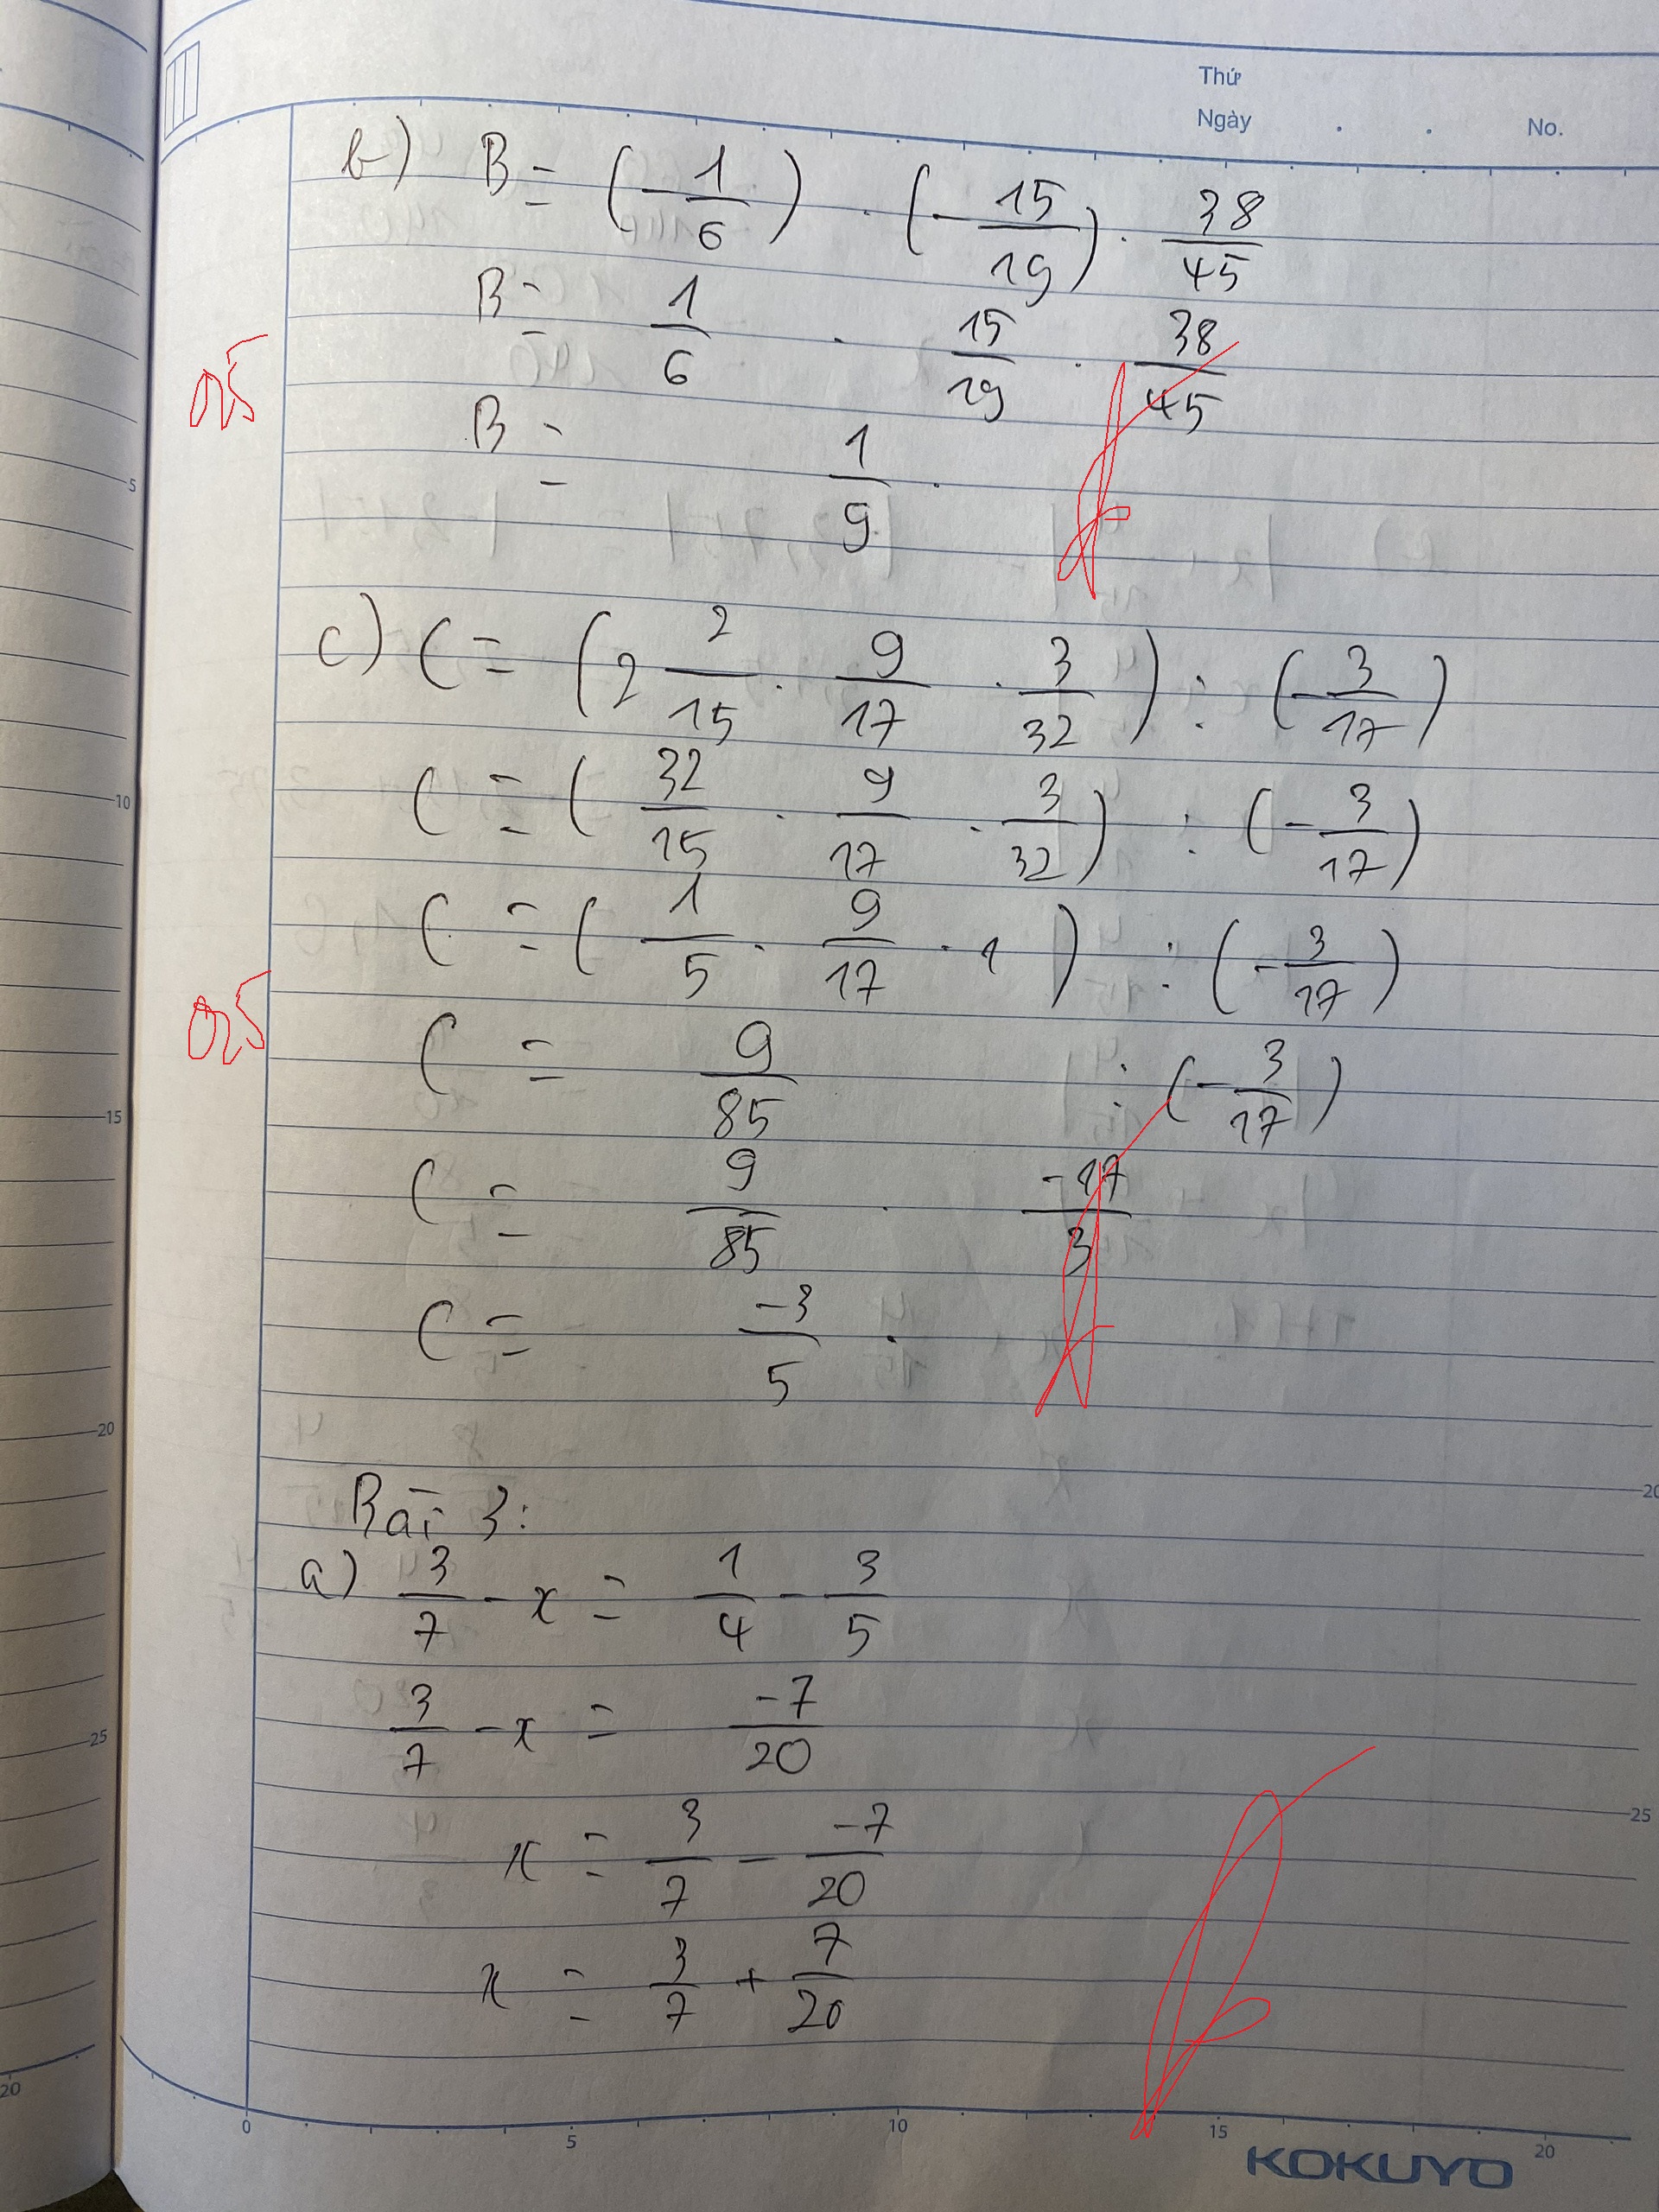 Thứ
Ngày . . No.
b) B = (-1/6) . (-15/19) . 38/45
B = 1/6 . 15/19 . 38/45
0,5
B = 1/9 .
c) C = (2 2/15 . 9/17 . 3/32) : (-3/17)
C = (32/15 . 9/17 . 3/32) : (-3/17)
C = (1/5 . 9/17 . 1) : (-3/17)
0,5
C = 9/85 : (-3/17)
C = 9/85 . -17/3
C = -3/5 .
Bài 3:
a) 3/7 - x = 1/4 - 3/5
3/7 - x = -7/20
x = 3/7 - -7/20
x = 3/7 + 7/20
5
10
15
20
25
20
25
20
0
5
10
15
20
KOKUYO